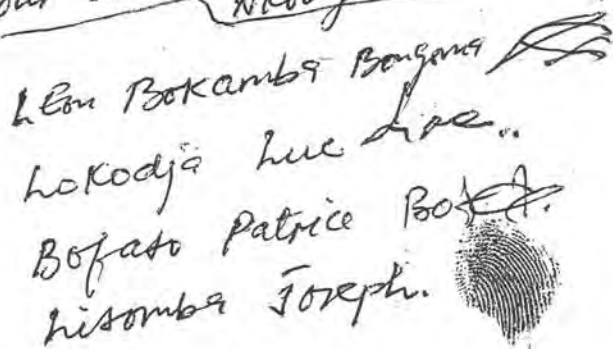 LEon Bokamba Bongoma
Lokodja Luc
Bofaso Patrice
Lisomba Joseph.